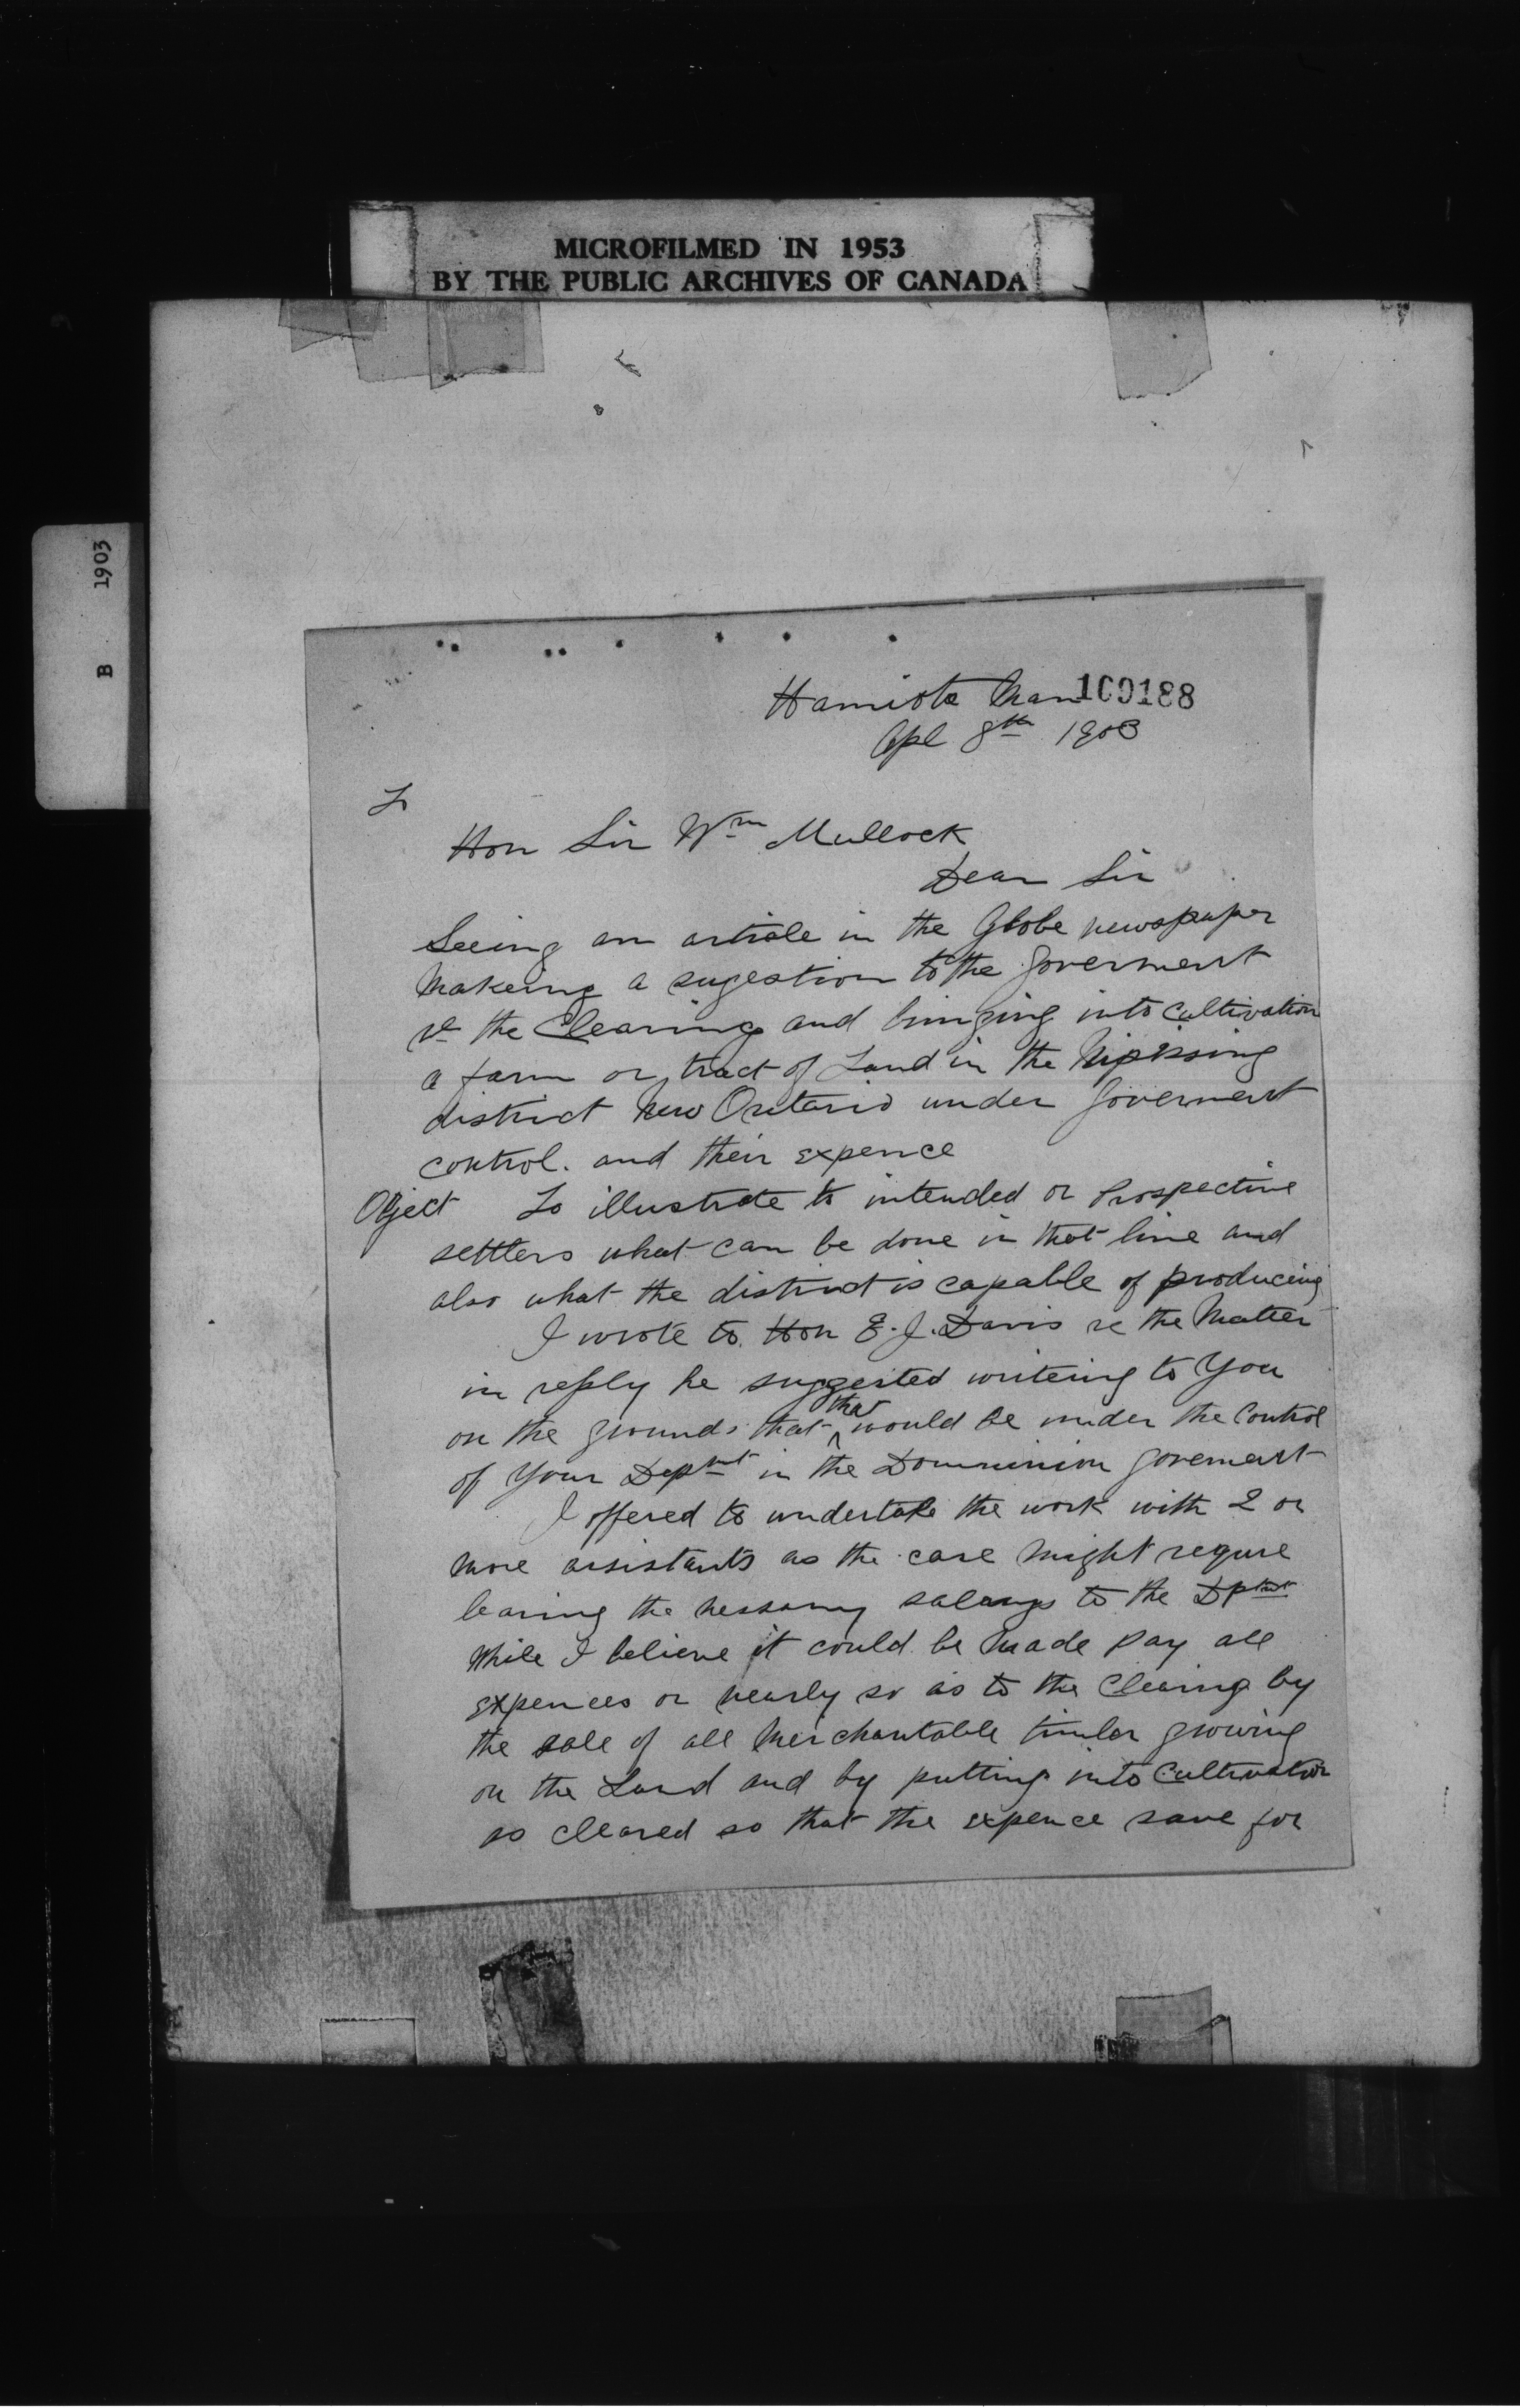 MICROFILMED IN 1953
BY THE PUBLIC ARCHIVES OF CANADA
B 1903
Hamiota Man 100188
Apl 8th 1903
To
Hon Sir Wm Mullock
Dear Sir
Seeing an article in the Globe newspaper
Makeing a sugestion to the goverment
re the Clearing and bringing into cultivation
a farm or tract of Land in the Nipissing
district New Ontario under Goverment
control. and their expence
Object To illustrate to intended or Prospective
settlers what can be done in that line and
also what the district is capable of producing
I wrote to Hon E. J. Davis re the Matter
in reply he suggested writeing to You
on the grounds that that would be under the Control
of Your Depmt in the Domminion goverment
I offered to undertake the work with 2 or
more assistants as the case might requre
leaving the nessary salarys to the Dptmt
While I believe it could be Made pay all
expences or nearly so as to the Clearing by
the sale of all Merchantable timber growing
on the Land and by putting into Cultivation
as cleared so that the expence save for